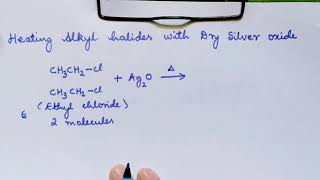 Heating Alkyl halides with Dry Silver oxide
CH₃CH₂–Cl
+ Ag₂O →
Δ
CH₃CH₂–Cl
6
(Ethyl chloride)
2 molecules